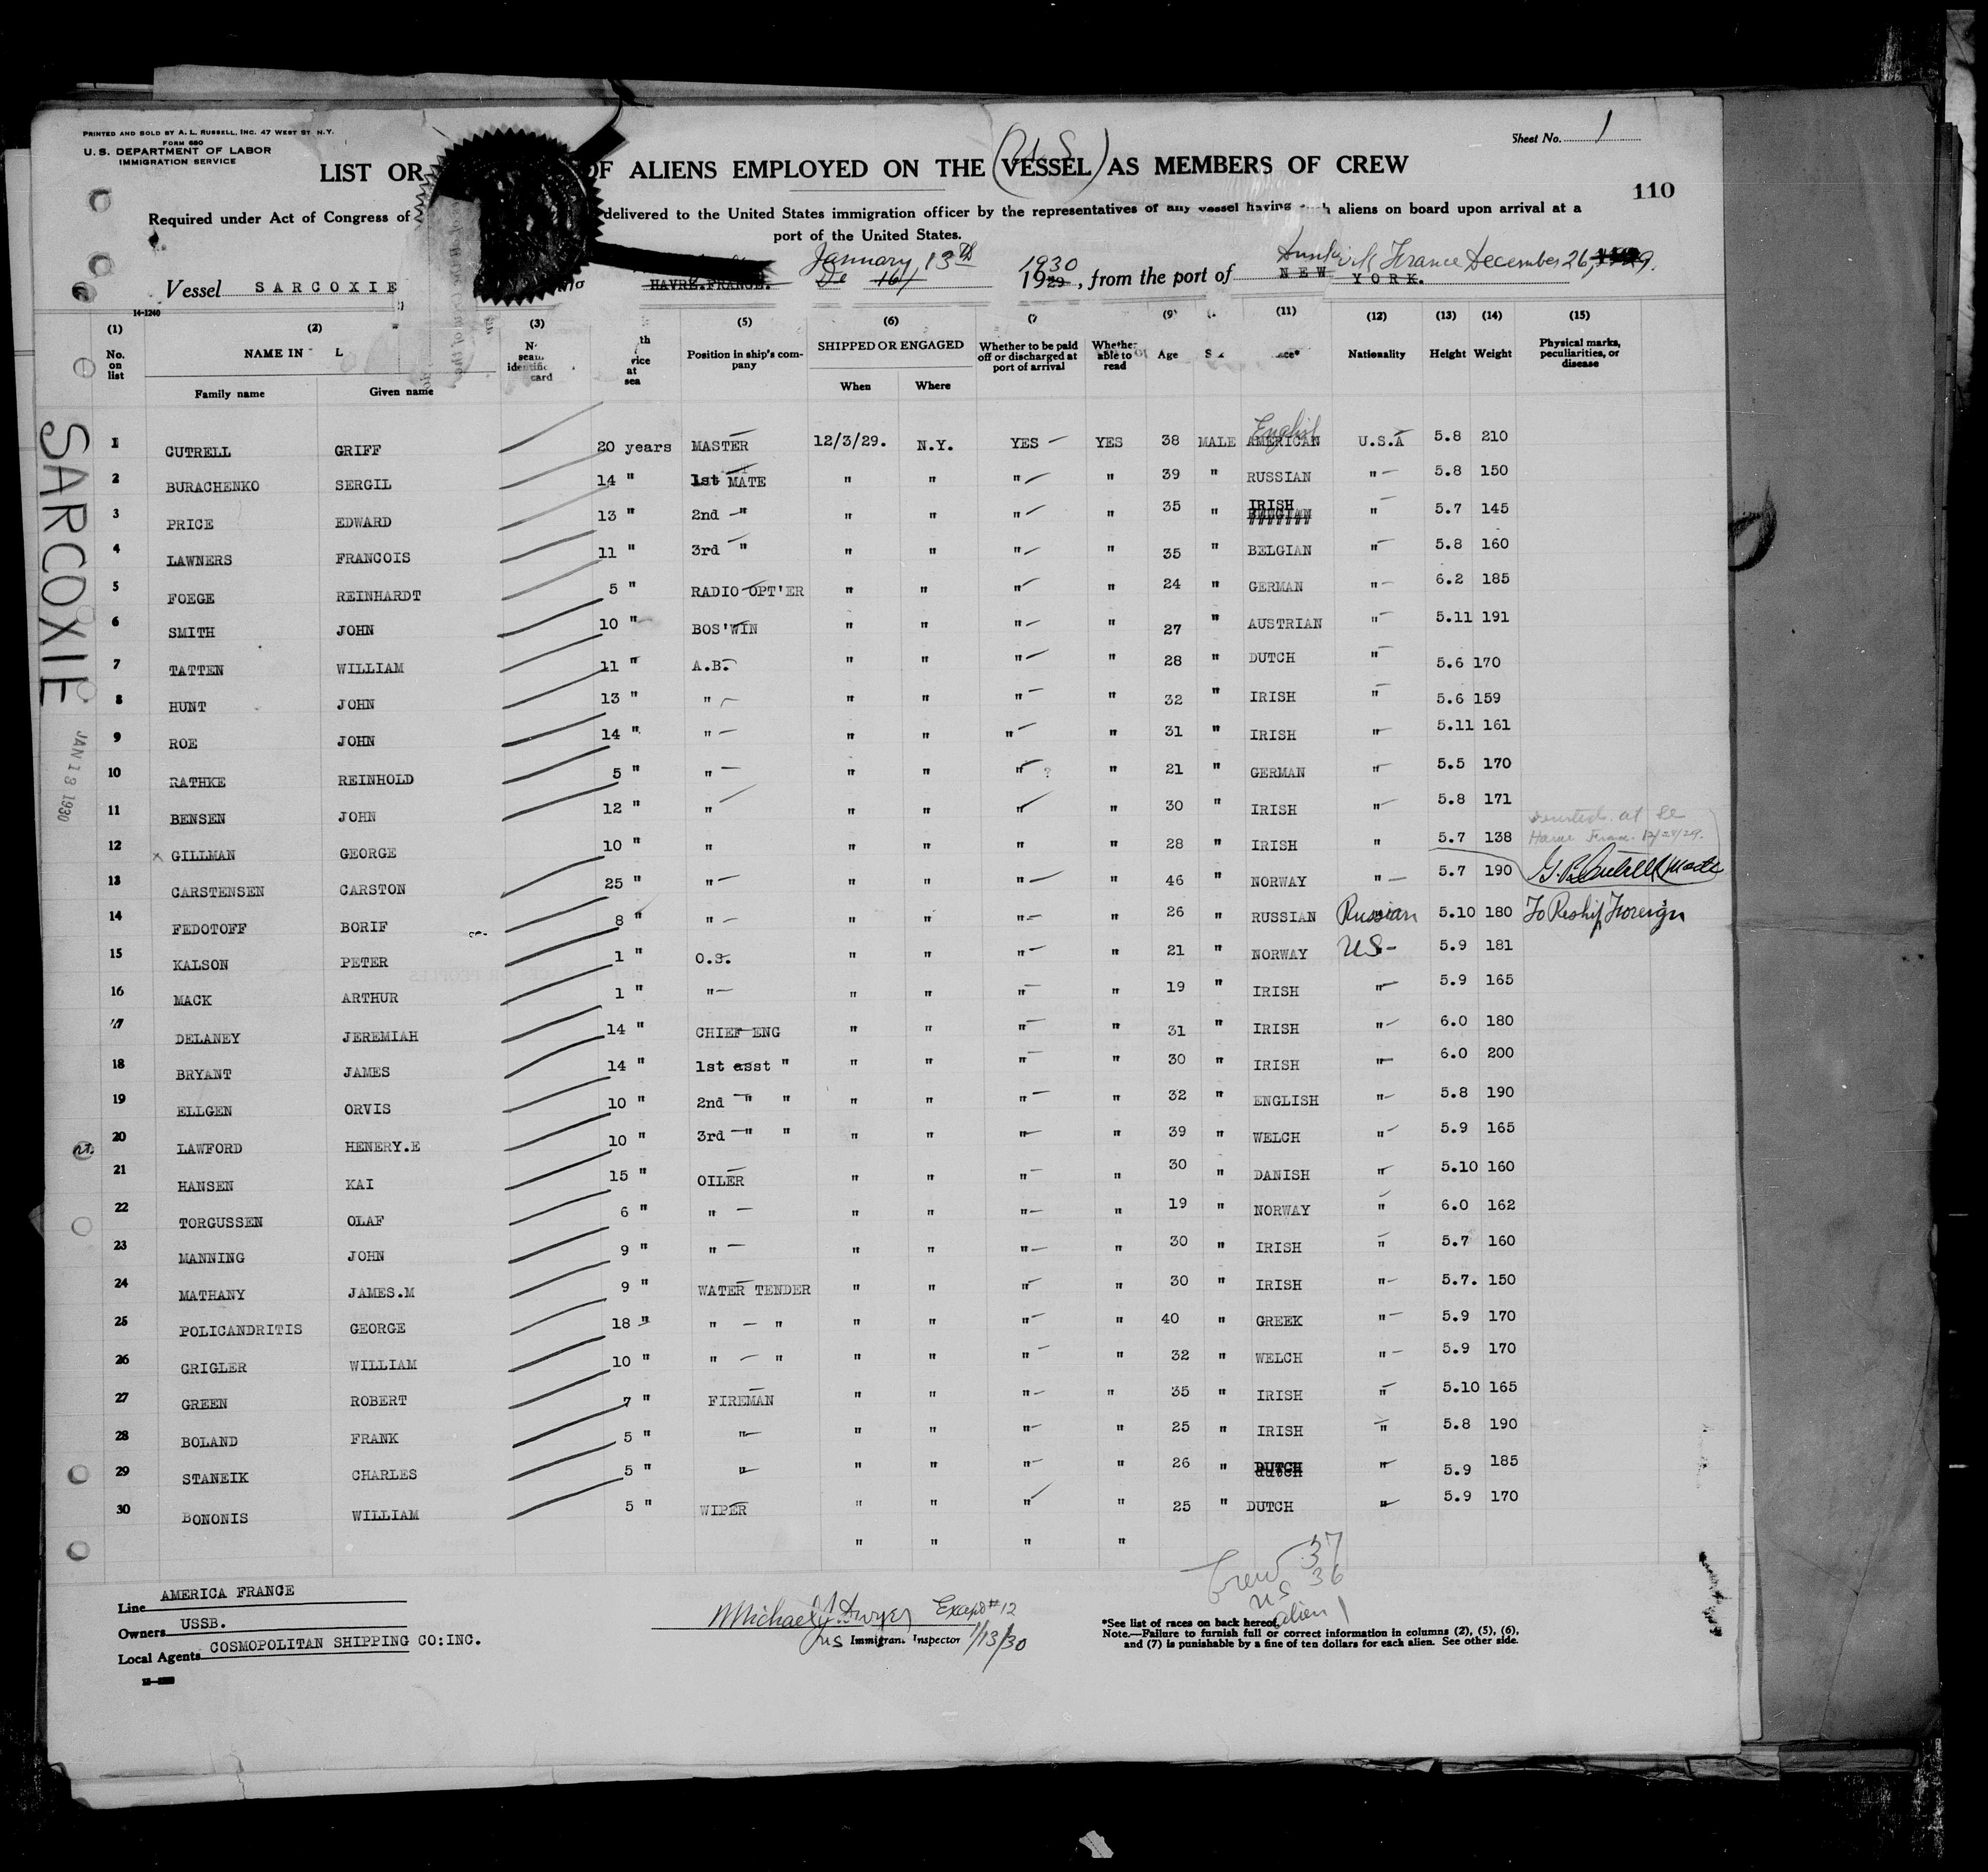 PRINTED AND SOLD BY A. L. RUSSELL, INC. 47 WEST ST N.Y.
FORM 680
U. S. DEPARTMENT OF LABOR
IMMIGRATION SERVICE
Sheet No. 1
(U.S.)
LIST OR OF ALIENS EMPLOYED ON THE VESSEL AS MEMBERS OF CREW
110
Required under Act of Congress of delivered to the United States immigration officer by the representatives of any vessel having such aliens on board upon arrival at a
port of the United States.
January 13th 1930 Dunkirk France December 26, 29.
Vessel SARCOXIE HAVRE.FRANCE. De 16/ 1929, from the port of NEW YORK.
14-1240
(1) (2) (3) (5) (6) (9) (11) (12) (13) (14) (15)
No. on list NAME IN Family name Given name card at sea Position in ship's company SHIPPED OR ENGAGED When Where Whether to be paid off or discharged at port of arrival Whether able to read Age Nationality Height Weight Physical marks, peculiarities, or disease
English
1 CUTRELL GRIFF 20 years MASTER 12/3/29. N.Y. YES YES 38 MALE AMERICAN U.S.A 5.8 210
2 BURACHENKO SERGIL 14 " 1st MATE " " " " 39 " RUSSIAN " 5.8 150
3 PRICE EDWARD 13 " 2nd " " " " " 35 " IRISH BELGIAN " 5.7 145
4 LAWNERS FRANCOIS 11 " 3rd " " " " " 35 " BELGIAN " 5.8 160
5 FOEGE REINHARDT 5 " RADIO OPT'ER " " " " 24 " GERMAN " 6.2 185
6 SMITH JOHN 10 " BOS'WIN " " " " 27 " AUSTRIAN " 5.11 191
7 TATTEN WILLIAM 11 " A.B. " " " " 28 " DUTCH " 5.6 170
8 HUNT JOHN 13 " " " " " " 32 " IRISH " 5.6 159
9 ROE JOHN 14 " " " " " " 31 " IRISH " 5.11 161
10 RATHKE REINHOLD 5 " " " " " ? " 21 " GERMAN " 5.5 170
11 BENSEN JOHN 12 " " " " " " 30 " IRISH " 5.8 171
deserted at Le
Havre France 12/28/29.
12 x GILLMAN GEORGE 10 " " " " " " 28 " IRISH " 5.7 138
13 CARSTENSEN CARSTON 25 " " " " " " 46 " NORWAY " 5.7 190 G. B. Cutrell Master
14 FEDOTOFF BORIF 8 " " " " " " 26 " RUSSIAN Russian 5.10 180 To Reship Foreign
15 KALSON PETER 1 " O.S. " " " " 21 " NORWAY US 5.9 181
16 MACK ARTHUR 1 " " " " " " 19 " IRISH " 5.9 165
17 DELANEY JEREMIAH 14 " CHIEF ENG " " " " 31 " IRISH " 6.0 180
18 BRYANT JAMES 14 " 1st asst " " " " " 30 " IRISH " 6.0 200
19 ELLGEN ORVIS 10 " 2nd " " " " " " 32 " ENGLISH " 5.8 190
20 LAWFORD HENERY.E 10 " 3rd " " " " " " 39 " WELCH " 5.9 165
21 HANSEN KAI 15 " OILER " " " " 30 " DANISH " 5.10 160
22 TORGUSSEN OLAF 6 " " " " " " 19 " NORWAY " 6.0 162
23 MANNING JOHN 9 " " " " " " 30 " IRISH " 5.7 160
24 MATHANY JAMES.M 9 " WATER TENDER " " " " 30 " IRISH " 5.7. 150
25 POLICANDRITIS GEORGE 18 " " " " " " " 40 " GREEK " 5.9 170
26 GRIGLER WILLIAM 10 " " " " " " " 32 " WELCH " 5.9 170
27 GREEN ROBERT 7 " FIREMAN " " " " 35 " IRISH " 5.10 165
28 BOLAND FRANK 5 " " " " " " 25 " IRISH " 5.8 190
29 STANEIK CHARLES 5 " " " " " " 26 " DUTCH " 5.9 185
30 BONONIS WILLIAM 5 " WIPER " " " " 25 " DUTCH " 5.9 170
" " " "
SARCOXIE
JAN 13 1930
Crew 37
US 36
alien 1
Line AMERICA FRANCE
Owners USSB.
Local Agents COSMOPOLITAN SHIPPING CO:INC.
Michael J. Dwyer Except #12
US Immigrant Inspector 1/13/30
*See list of races on back hereof.
Note.—Failure to furnish full or correct information in columns (2), (5), (6),
and (7) is punishable by a fine of ten dollars for each alien. See other side.